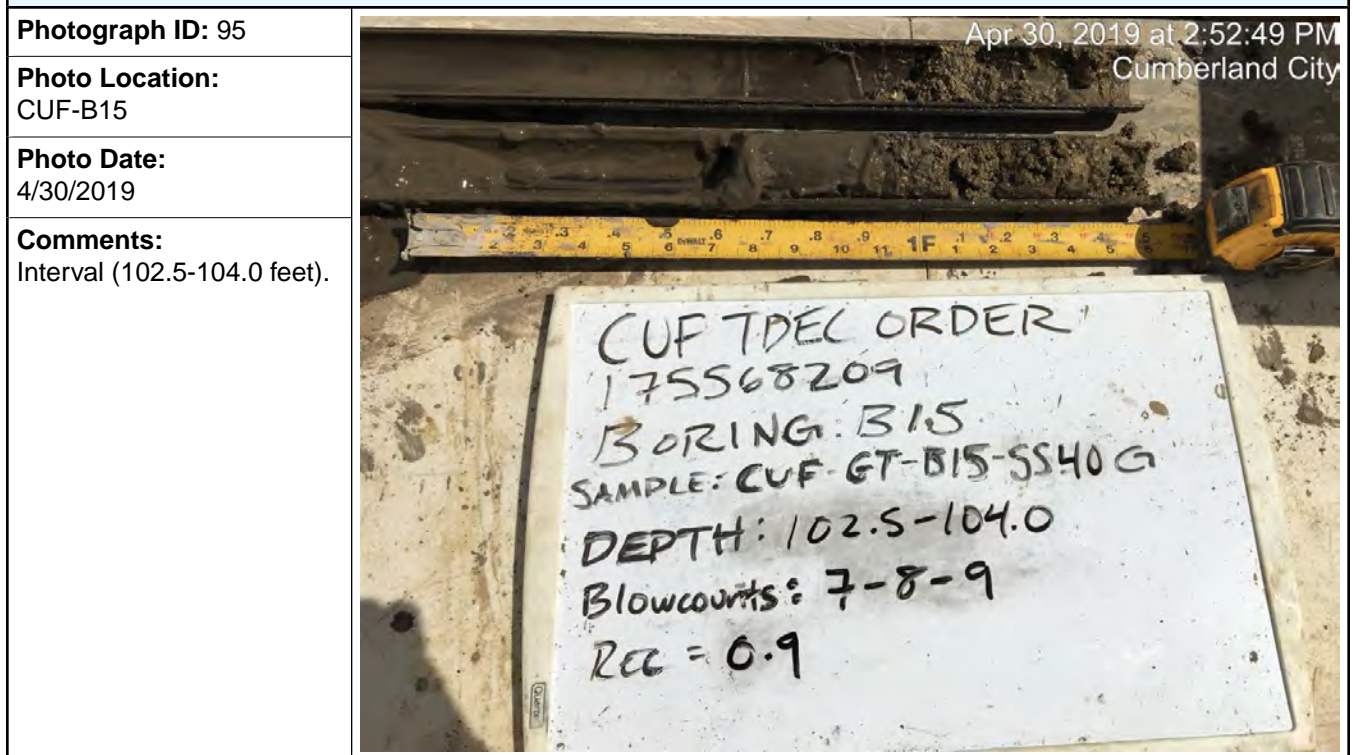 Photograph ID: 95
Photo Location:
CUF-B15
Photo Date:
4/30/2019
Comments:
Interval (102.5-104.0 feet).
Apr 30, 2019 at 2:52:49 PM
Cumberland City
DEWALT
1F
CUF TDEC ORDER
175568209
BORING: B15
SAMPLE: CUF-GT-B15-SS40 G
DEPTH: 102.5-104.0
Blowcounts: 7-8-9
REC = 0.9
Quartet